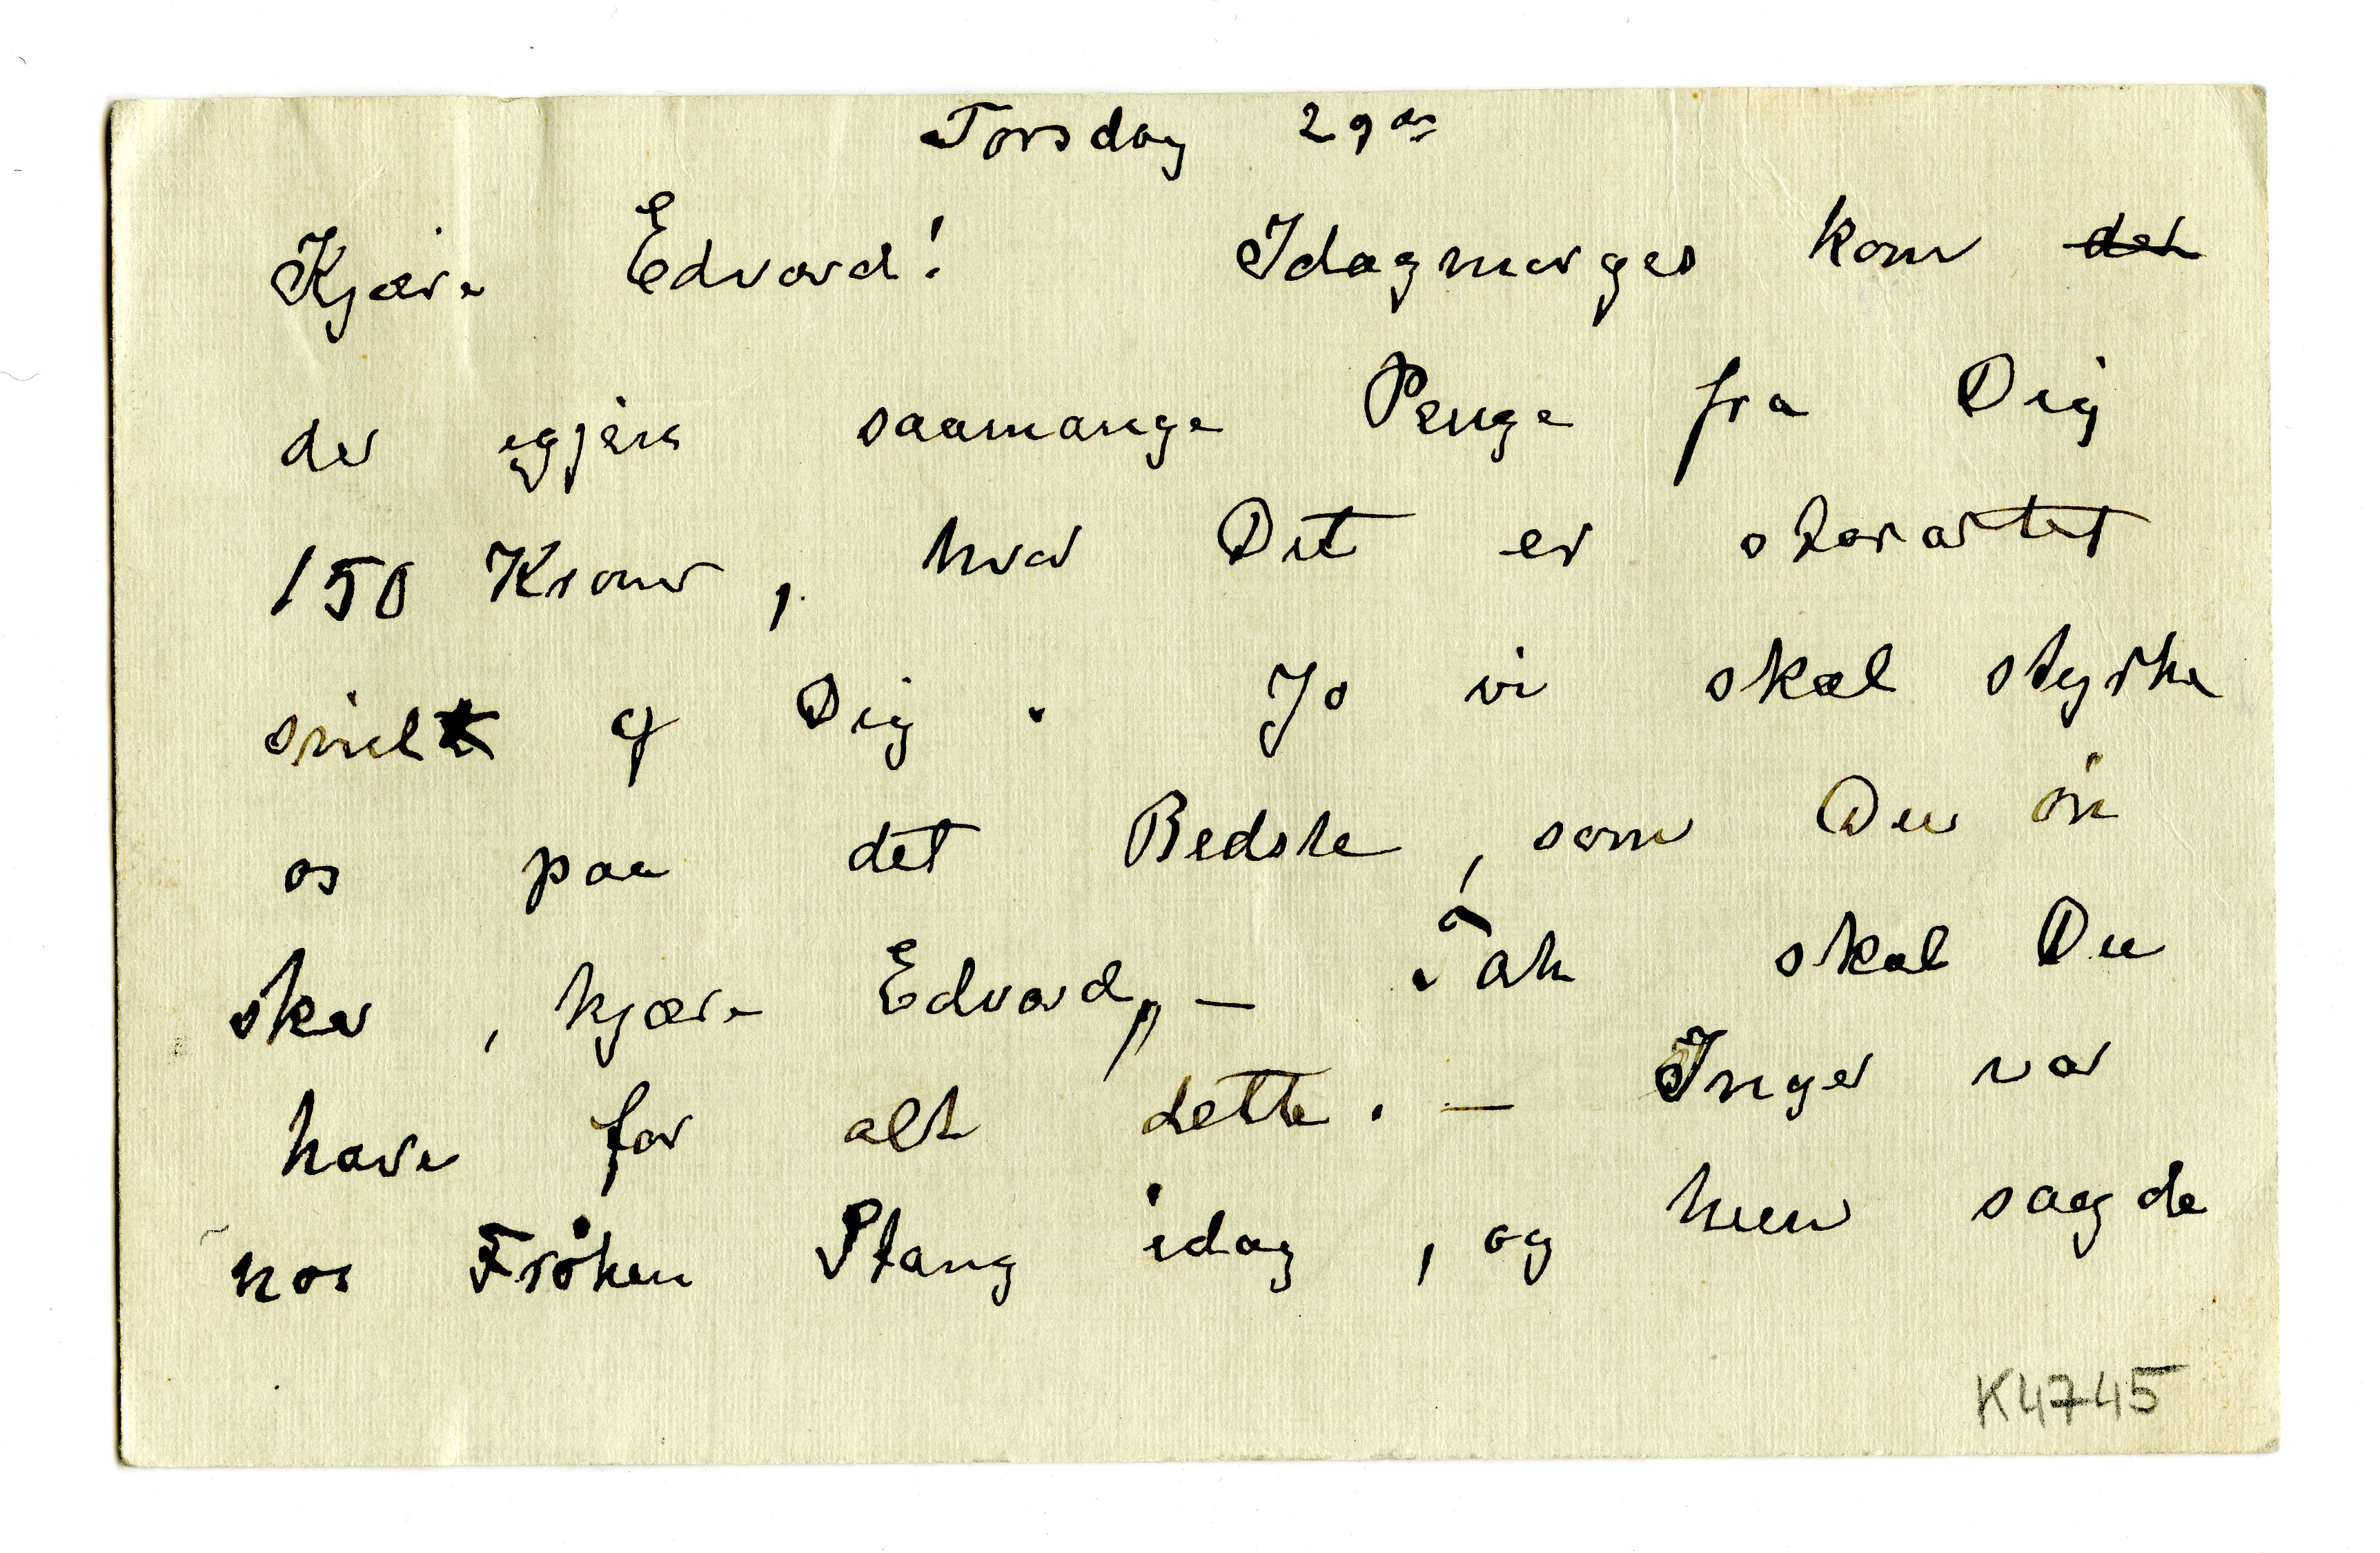 Torsdag 29de
Kjære Edvard! Idagmorges kom det
der igjen saamange Penge fra Dig
150 Kroner, hvor Det er storartet
snilt af Dig. Jo vi skal styrke
os paa det Bedste, som Du øn
sker, kjære Edvard, — Tak skal Du
have for alt dette. — Inger var
hos Frøken Stang idag, og hun sagde
K4745